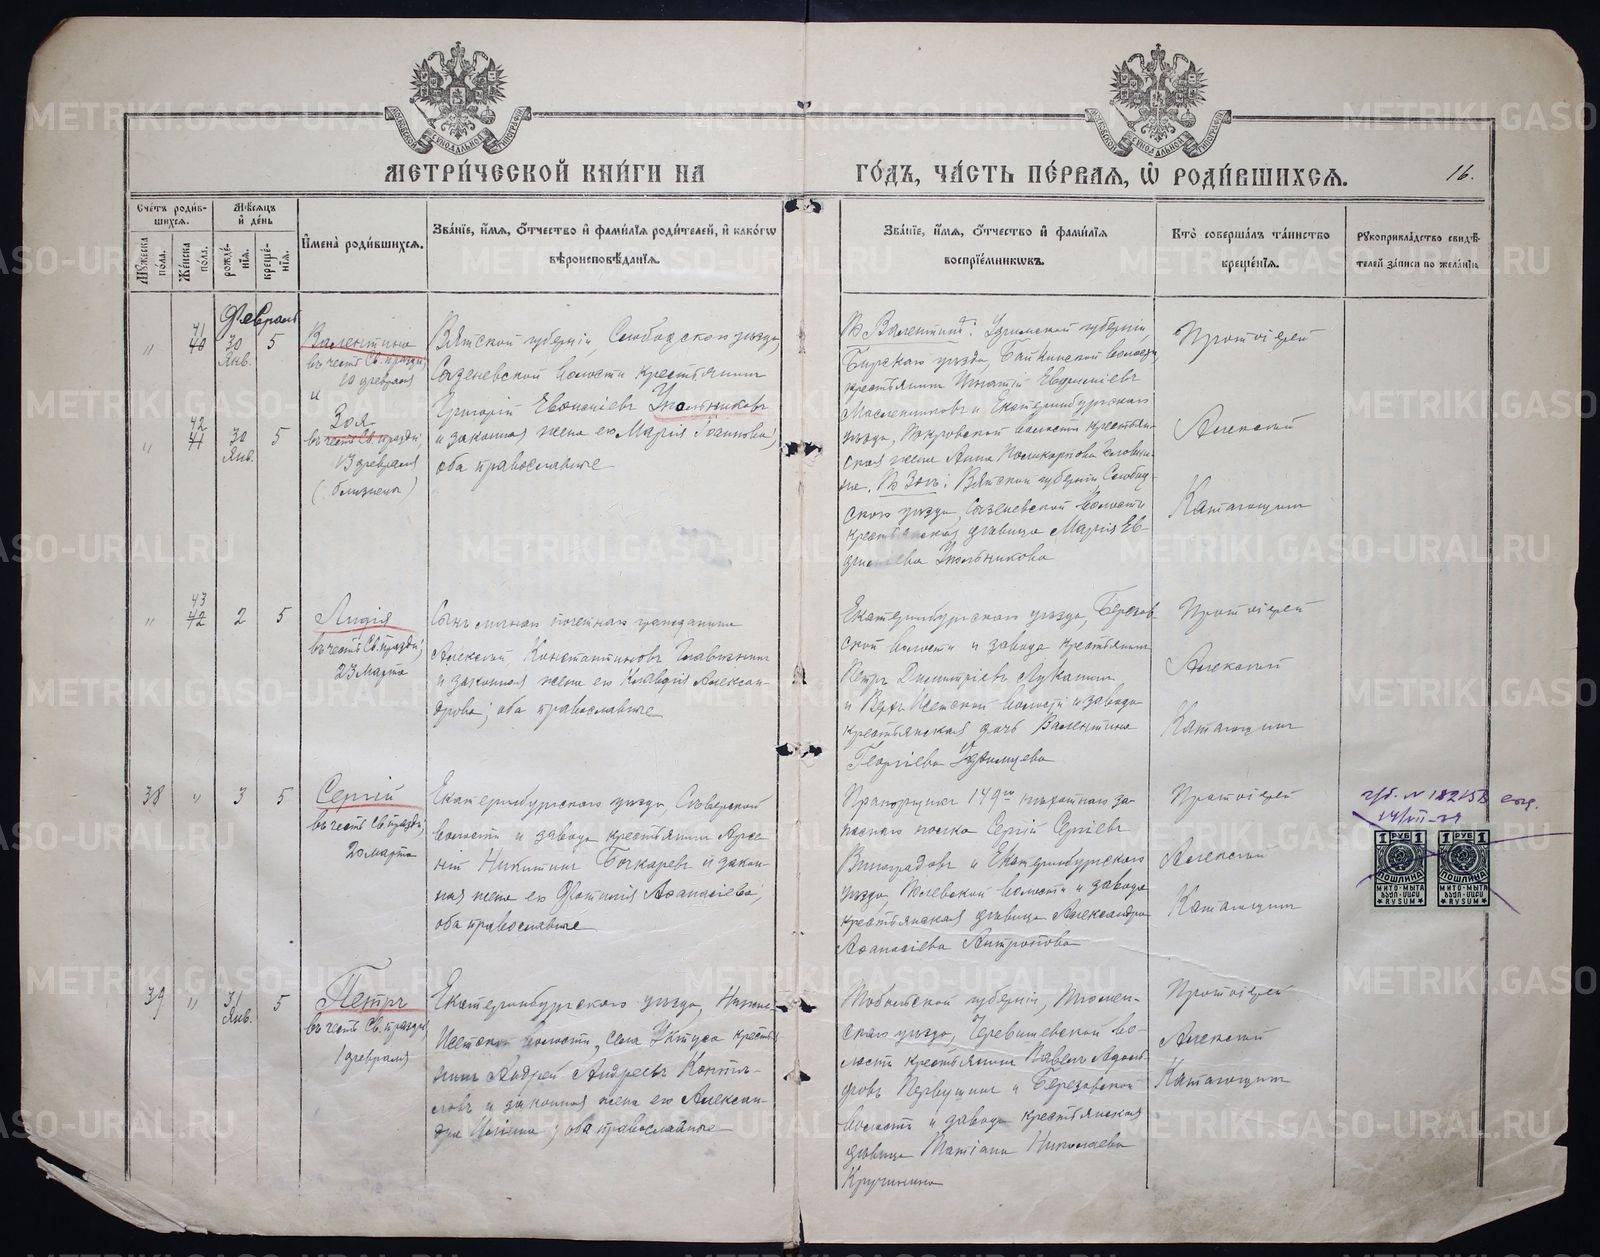 МЕТРИ́ЧЕСКОЙ КНИ́ГИ НА ГО́ДЪ, ЧА́СТЬ ПЕ́РВАЯ, Ѡ҆ РОДИ́ВШИХСЯ.
16.
Сче́тъ роди́вшихся.
Мꙋ́жеска по́ла.
Же́нска по́ла.
Мѣ́сяцъ и҆ де́нь
рожде́нїя.
креще́нїя.
И҆мена̀ роди́вшихся.
Зва́нїе, и҆́мя, ѻ҆́тчество и҆ фами́лїя роди́телей, и҆ како́гѡ
вѣроисповѣ́данїя.
Зва́нїе, и҆́мя, ѻ҆́тчество и҆ фами́лїя
воспрїе́мникѡвъ.
Кто̀ соверша́лъ та́инство
креще́нїя.
Рꙋкоприкла́дство свидѣ́телей за́писи по жела́нїю.
Февраль
41
40
30
Янв.
5
Валентина
въ честь Св. праздн.
10 февраля
и
42
41
30
Янв.
5
Зоя
въ честь Св. праздн.
13 февраля
(близнецы)
Вятской губерніи, Слободскаго уѣзда,
Сазеневской волости крестьянинъ
Григорій
и законная жена его Марія Іоаннова,
оба православные
Къ Валентинѣ: Уфимской губерніи,
Бирскаго уѣзда, Байкинской волости,
крестьянинъ Игнатій
Масленниковъ и Екатеринбургскаго
уѣзда, Покровской волости крестьян-
ская жена Анна Поликарпова
Къ Зоѣ: Вятской губерніи, Слобод-
скаго уѣзда, Сазеневской волости
крестьянская дѣвица Марія Ев-
Протоіерей
Алексей
43
42
2
5
Лидія
въ честь Св. праздн.
23 Марта
личнаго почетнаго гражданина
Алексей Константиновъ
и законная жена его Клавдія Алексан-
дрова, оба православные
Екатеринбургскаго уѣзда, Березов-
ской волости и завода крестьянинъ
Петръ Димитріевъ Лукинъ
и Верхъ-Исетской волости и завода
крестьянская дочь Валентина
Георгіева
Протоіерей
Алексей
38
3
5
Сергій
въ честь Св. праздн.
20 марта
Екатеринбургскаго уѣзда, Сѣверской
волости и завода крестьянинъ Арсе-
ній Никитинъ Бочкаревъ и закон-
ная жена его Фотинія Афанасіева,
оба православные
Прапорщикъ 149го пѣхотнаго за-
паснаго полка Сергій Сергіевъ
Виноградовъ и Екатеринбургскаго
уѣзда, Полевской волости и завода
крестьянская дѣвица Александра
Афанасіева Антропова
Протоіерей
Алексей
1 РУБ 1
ПОШЛИНА
МИТО·МЫТА
RVSUM
1 РУБ 1
ПОШЛИНА
МИТО·МЫТА
RVSUM
39
31
Янв.
5
Петръ
въ честь Св. праздн.
1 февраля
Екатеринбургскаго уѣзда, Нижне-
Исетской волости, села Уктуса крестья-
нинъ Андрей Андреевъ
и законная жена его Алексан-
дра оба православные
Тобольской губерніи, Тюмен-
скаго уѣзда, Червишевской во-
лости крестьянинъ Павелъ
Первушинъ и Березовской
волости и завода крестьянская
дѣвица Татіана Николаева
Кручинина
Протоіерей
Алексей